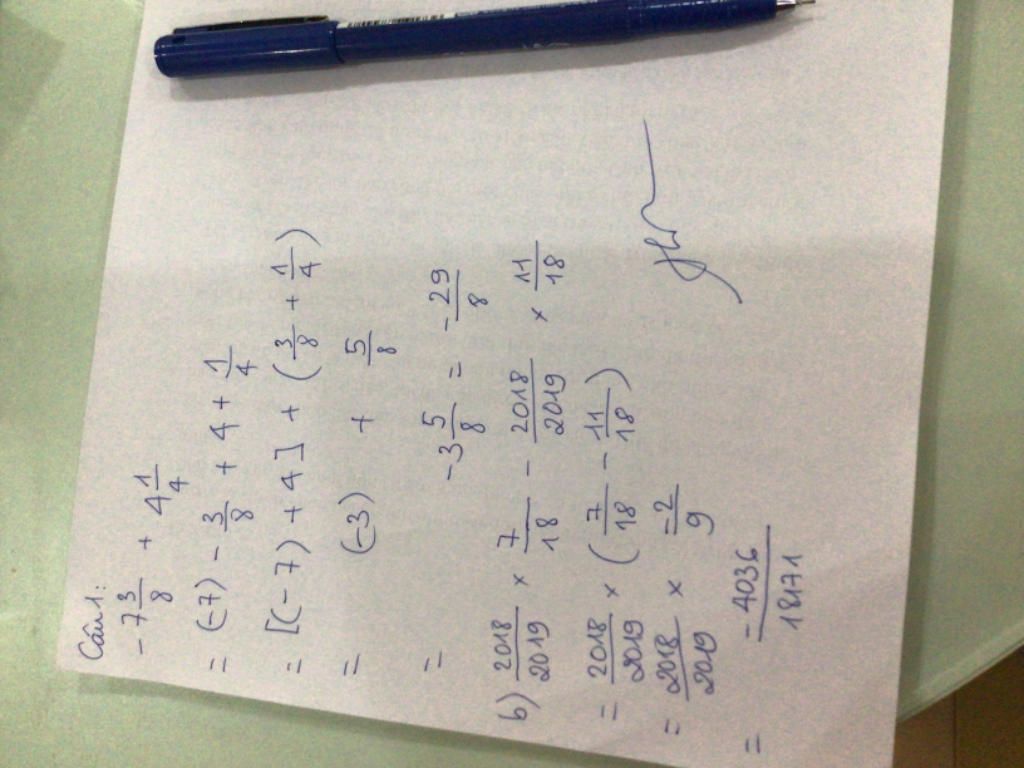 Câu 1:
-7 3/8 + 4 1/4
= (-7) - 3/8 + 4 + 1/4
= [(-7) + 4] + (3/8 + 1/4)
= (-3) + 5/8
= -3 5/8 = -29/8
b) 2018/2019 × 7/18 - 2018/2019 × 11/18
= 2018/2019 × (7/18 - 11/18)
= 2018/2019 × -2/9
= -4036/18171